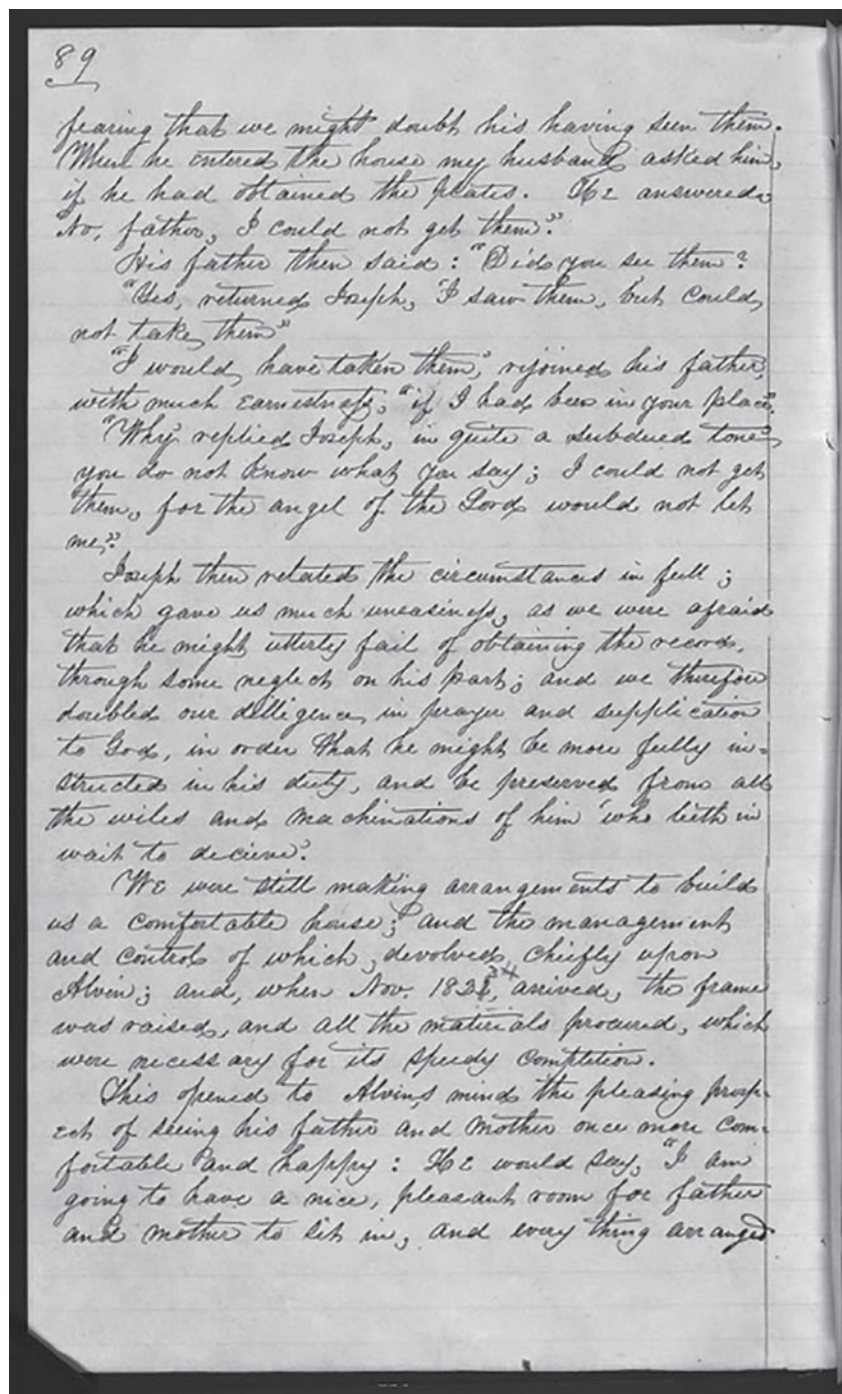 89
fearing that we might doubt his having seen them.
When he entered the house my husband asked him,
if he had obtained the plates. He answered
No, father, I could not get them."
His father then said: "Did you see them?
"Yes, returned Joseph, "I saw them, but could
not take them"
"I would have taken them," rejoined his father,
with much earnestness, "if I had been in your place".
"Why" replied Joseph, in quite a subdued tone"
you do not know what you say; I could not get
them, for the angel of the Lord would not let
me,"
Joseph then related the circumstances in full;
which gave us much uneasiness, as we were afraid
that he might utterly fail of obtaining the record,
through some neglect on his part; and we therefore
doubled our dilligence in prayer and supplication
to God, in order that he might be more fully in=
structed in his duty, and be preserved from all
the wiles and machinations of him 'who lieth in
wait to decieve'.
We were still making arrangements to build
us a comfortable house; and the management
and control of which, devolved, chiefly upon
Alvin; and, when Nov. arrived, the frame
was raised, and all the materials procured, which
were necessary for its speedy completion.
This opened to Alvin's mind the pleasing prosp-
ect of seeing his father and mother once more com-
fortable and happy: He would say, "I am
going to have a nice, pleasant room for father
and mother to sit in, and every thing arranged